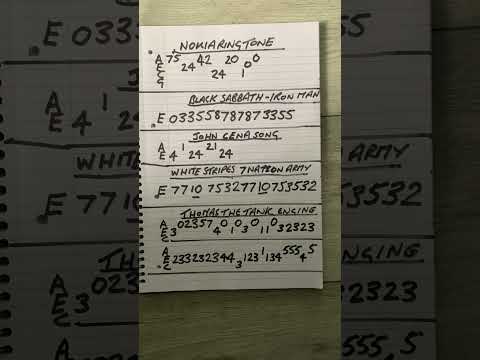 NOKIA RINGTONE
A 75 42 20 0
E 24 0
C 24 1
G
BLACK SABBATH - IRON MAN
E 033558787873355
JOHN CENA SONG
A 1 21
E 4 24 24
WHITE STRIPES 7 NATION ARMY
E 7710 7532771075 3532
THOMAS THE TANK ENGING
A 02357 0 0 0 0
E 3 4 1 3 11 32323
C
A 1 555 5
E 233232344 123 134 4
C 3